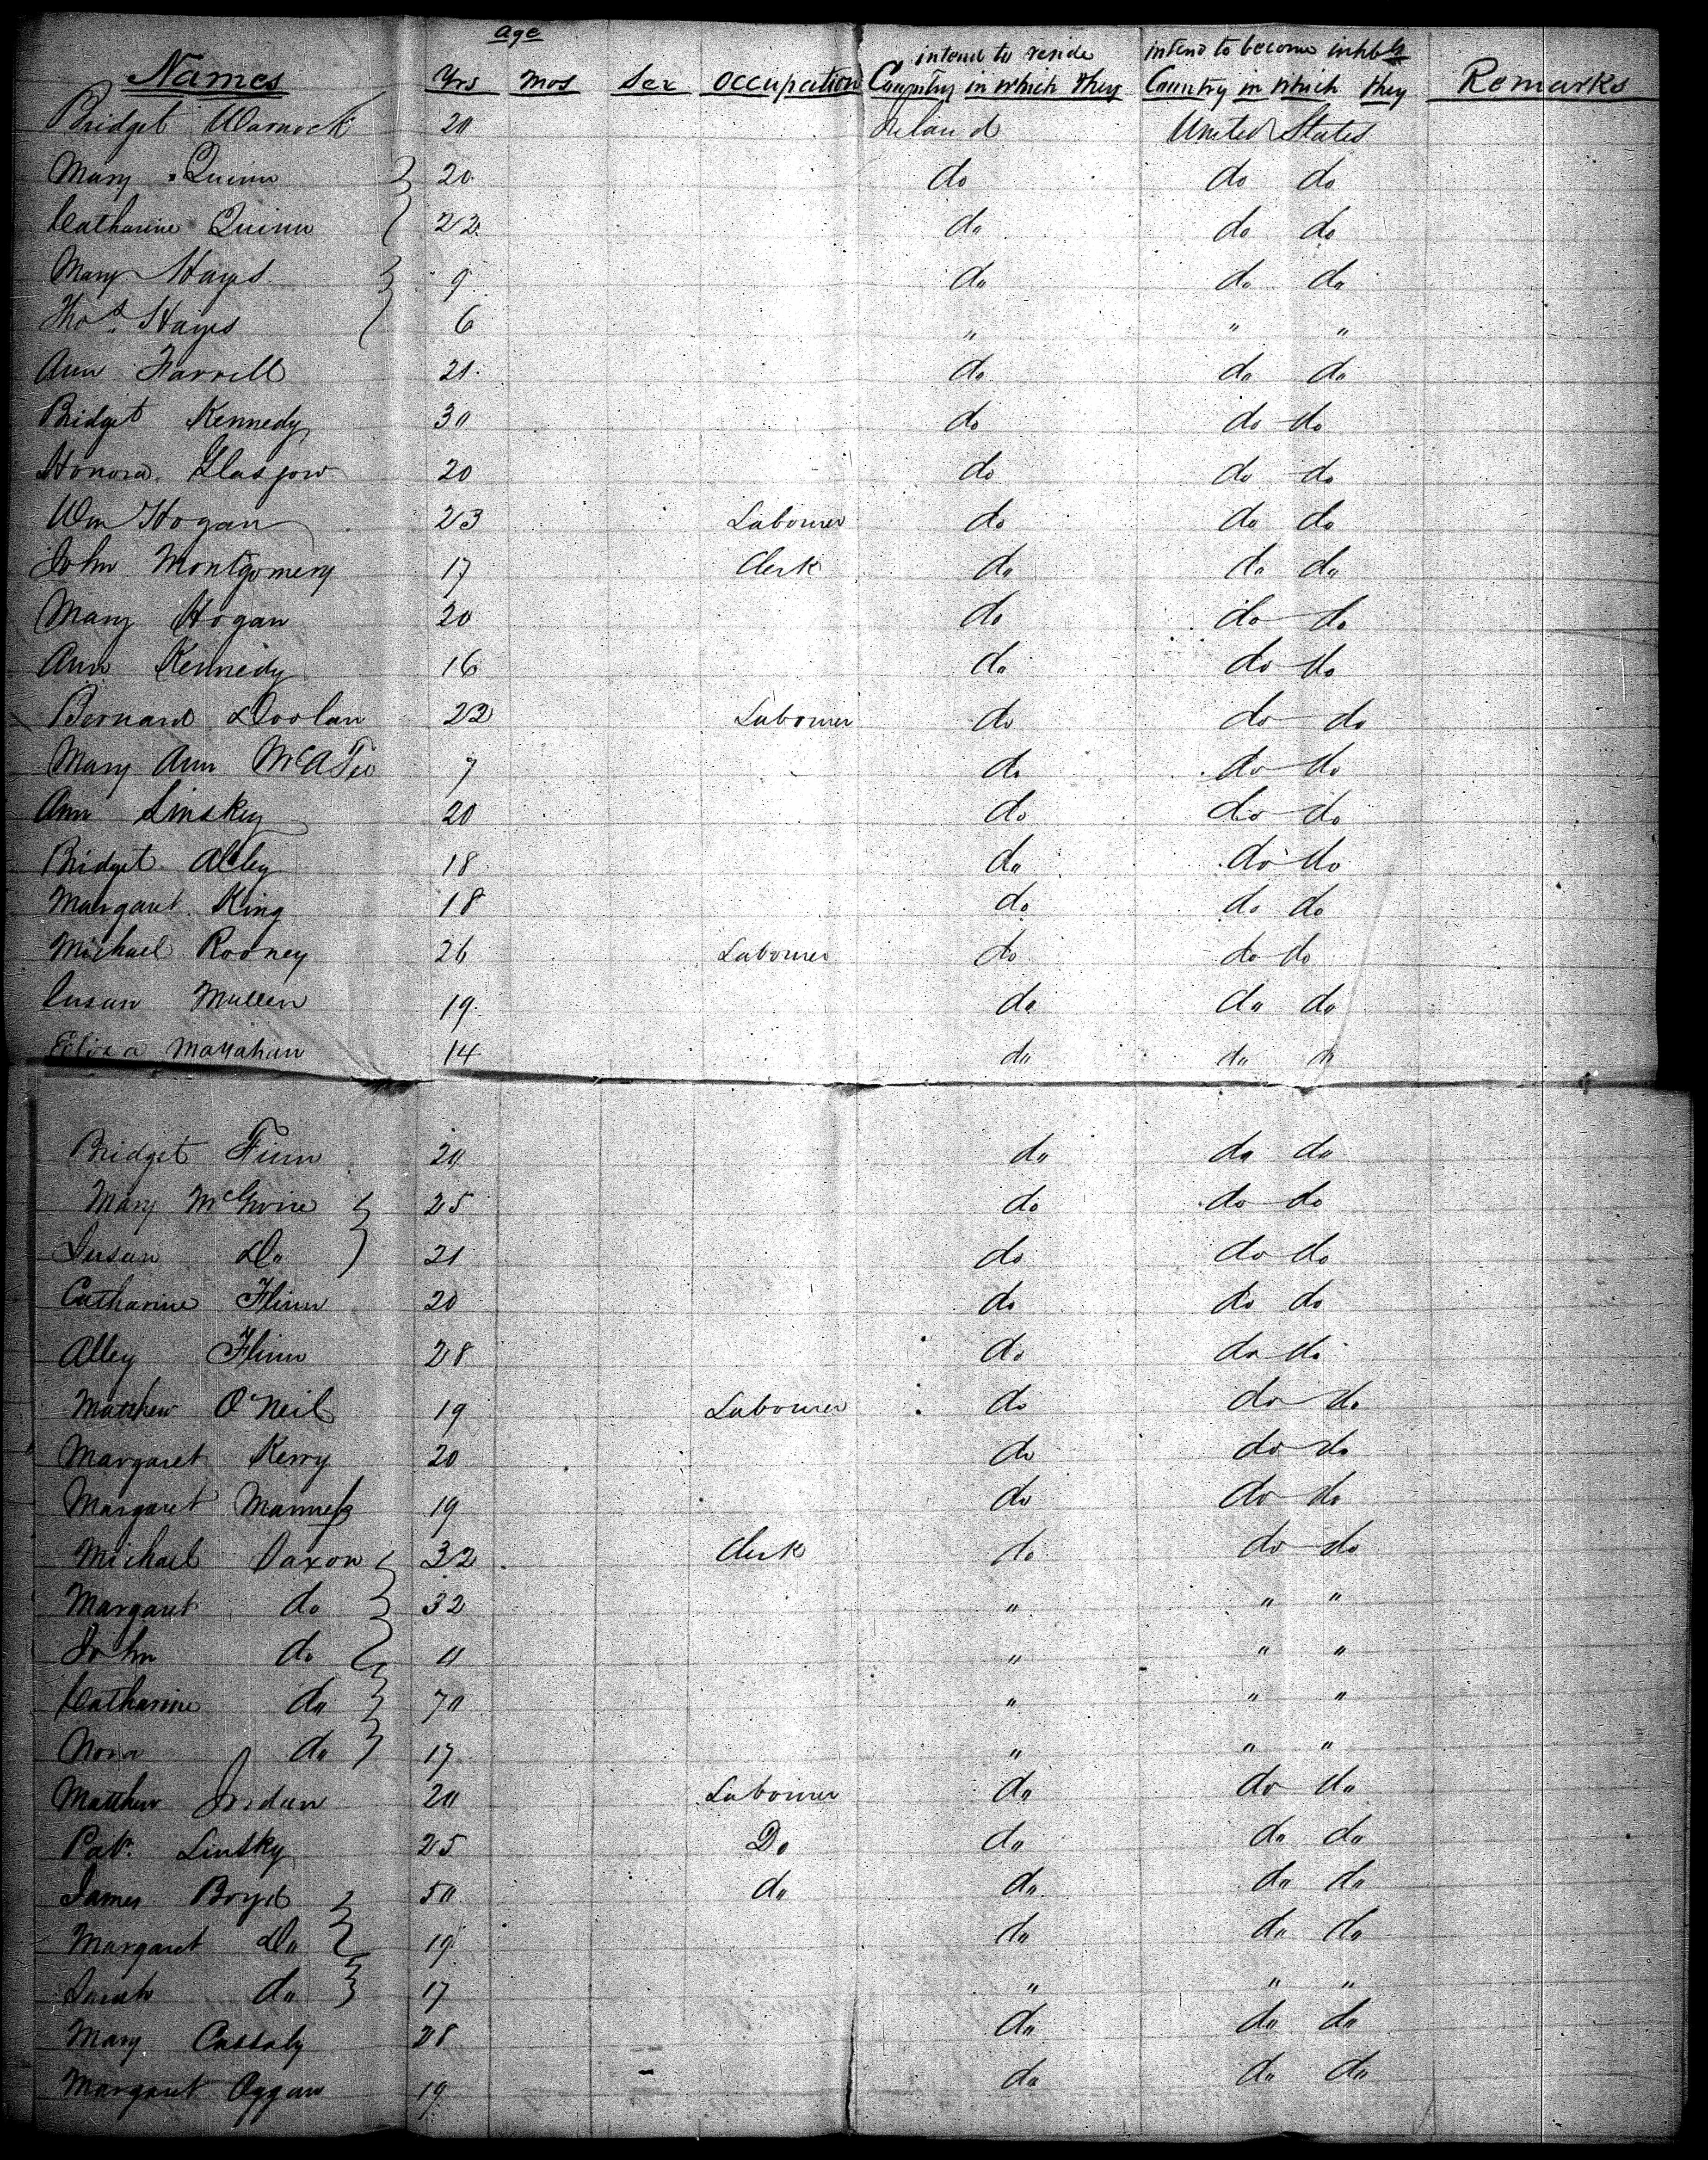 age
intend to reside intend to become inhbts
Names Yrs Mos Sex Occupation Country in which they Country in which they Remarks
Bridget Warnock 20 Ireland United States
Mary Quinn 20 do do do
Catharine Quinn 22 do do do
Mary Hayes 9 do do do
Thos. Hayes 6 " " "
Ann Farrell 21 do do do
Bridget Kennedy 30 do do do
Honora Glasgow 20 do do do
Wm Hogan 23 Labourer do do do
John Montgomery 17 Clerk do do do
Mary Hogan 20 do do do
Ann Kennedy 16 do do do
Bernard Doolan 22 Labourer do do do
Mary Ann McAtee 7 do do do
Ann Linskey 20 do do do
Bridget Alley 18 do do do
Margaret King 18 do do do
Michael Rooney 26 Labourer do do do
Susan Mullen 19 do do do
Monahan 14 do do do
Bridget Finn 20 do do do
Mary McGwire 25 do do do
Susan Do 21 do do do
Catharine Flinn 20 do do do
Alley Flinn 28 do do do
Matthew O'Neil 19 Labourer do do do
Margaret Kerry 20 do do do
Margaret 19 do do do
Michael Saxon 32 Clerk do do do
Margaret do 32 " " "
John do 11 " " "
Catharine do 70 " " "
Nora do 17 " " "
Matthew Jordan 20 Labourer do do do
Pat. Linsky 25 Do do do do
James Boyd 50 do do do do
Margaret Do 19 do do do
Sarah do 17 " " "
Mary Cassaly 28 do do do
Margaret Oggan 19 do do do